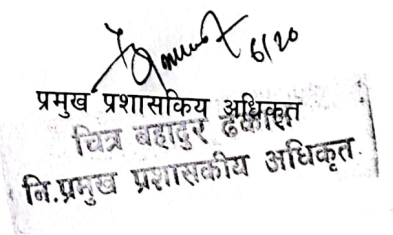 6/20
प्रमुख प्रशासकिय अधिकृत
चित्र बहादुर
नि.प्रमुख प्रशासकीय अधिकृत